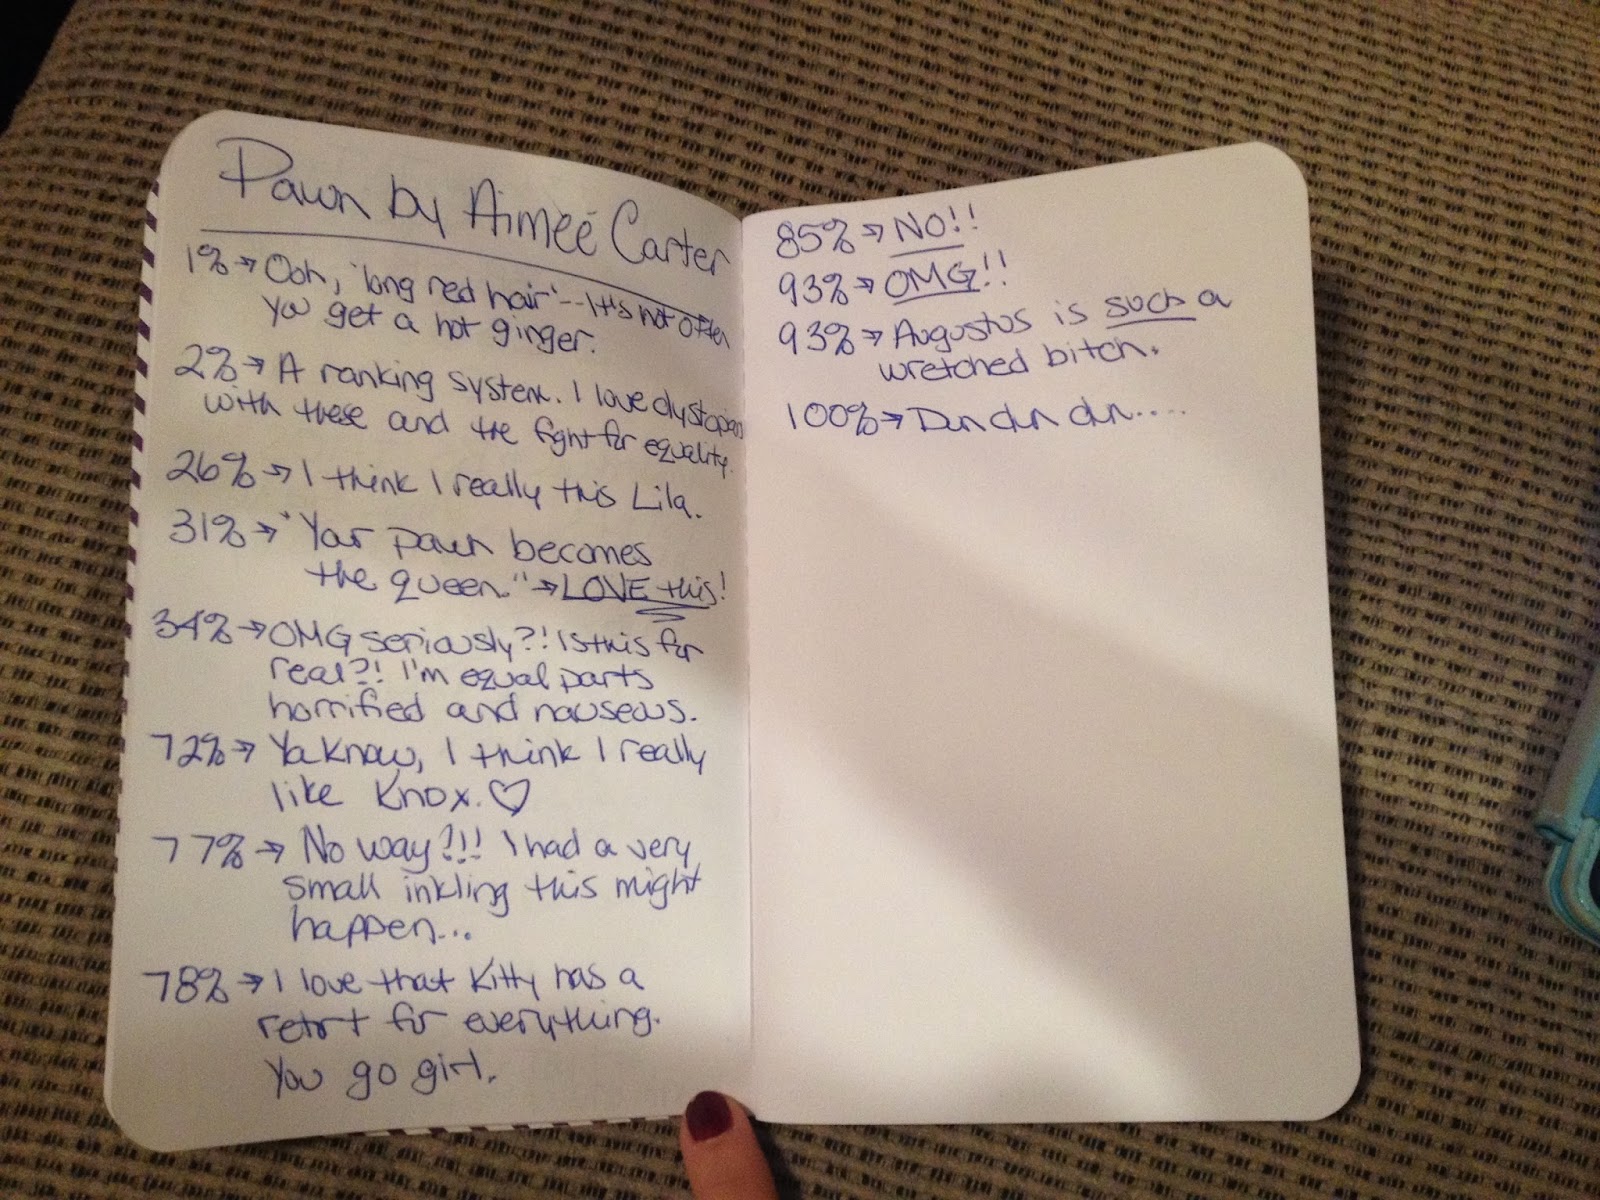 Pawn by Aimée Carter
1% → Ooh, "long red hair" -- It's not often
you get a hot ginger.
2% → A ranking system. I love dystopians
with these and the fight for equality.
26% → I think I really this Lila.
31% → "Your pawn becomes
the queen." → LOVE this!
34% → OMG seriously?! Is this for
real?! I'm equal parts
horrified and nauseous.
72% → Ya know, I think I really
like Knox. ♡
77% → No way?!!! I had a very
small inkling this might
happen...
78% → I love that Kitty has a
retort for everything.
You go girl.
85% → NO!!
93% → OMG!!
93% → Augustus is such a
wretched bitch.
100% → Dun dun dun....